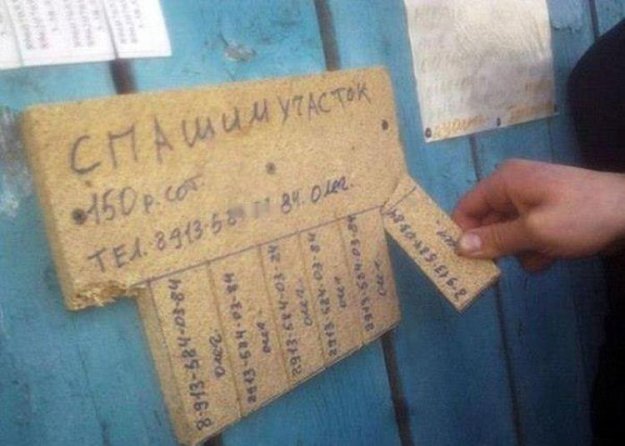 СПАШИМ УЧАСТОК
150 р. сот.
ТЕЛ. 8913.58 84. Олег.
8-913-584-03-84
Олег
8913-584-03-84
Олег
8913-584-03-84
Олег
8913-584-03-84
Олег
8913-584-03-84
Олег
8-913-584-03-84
Олег